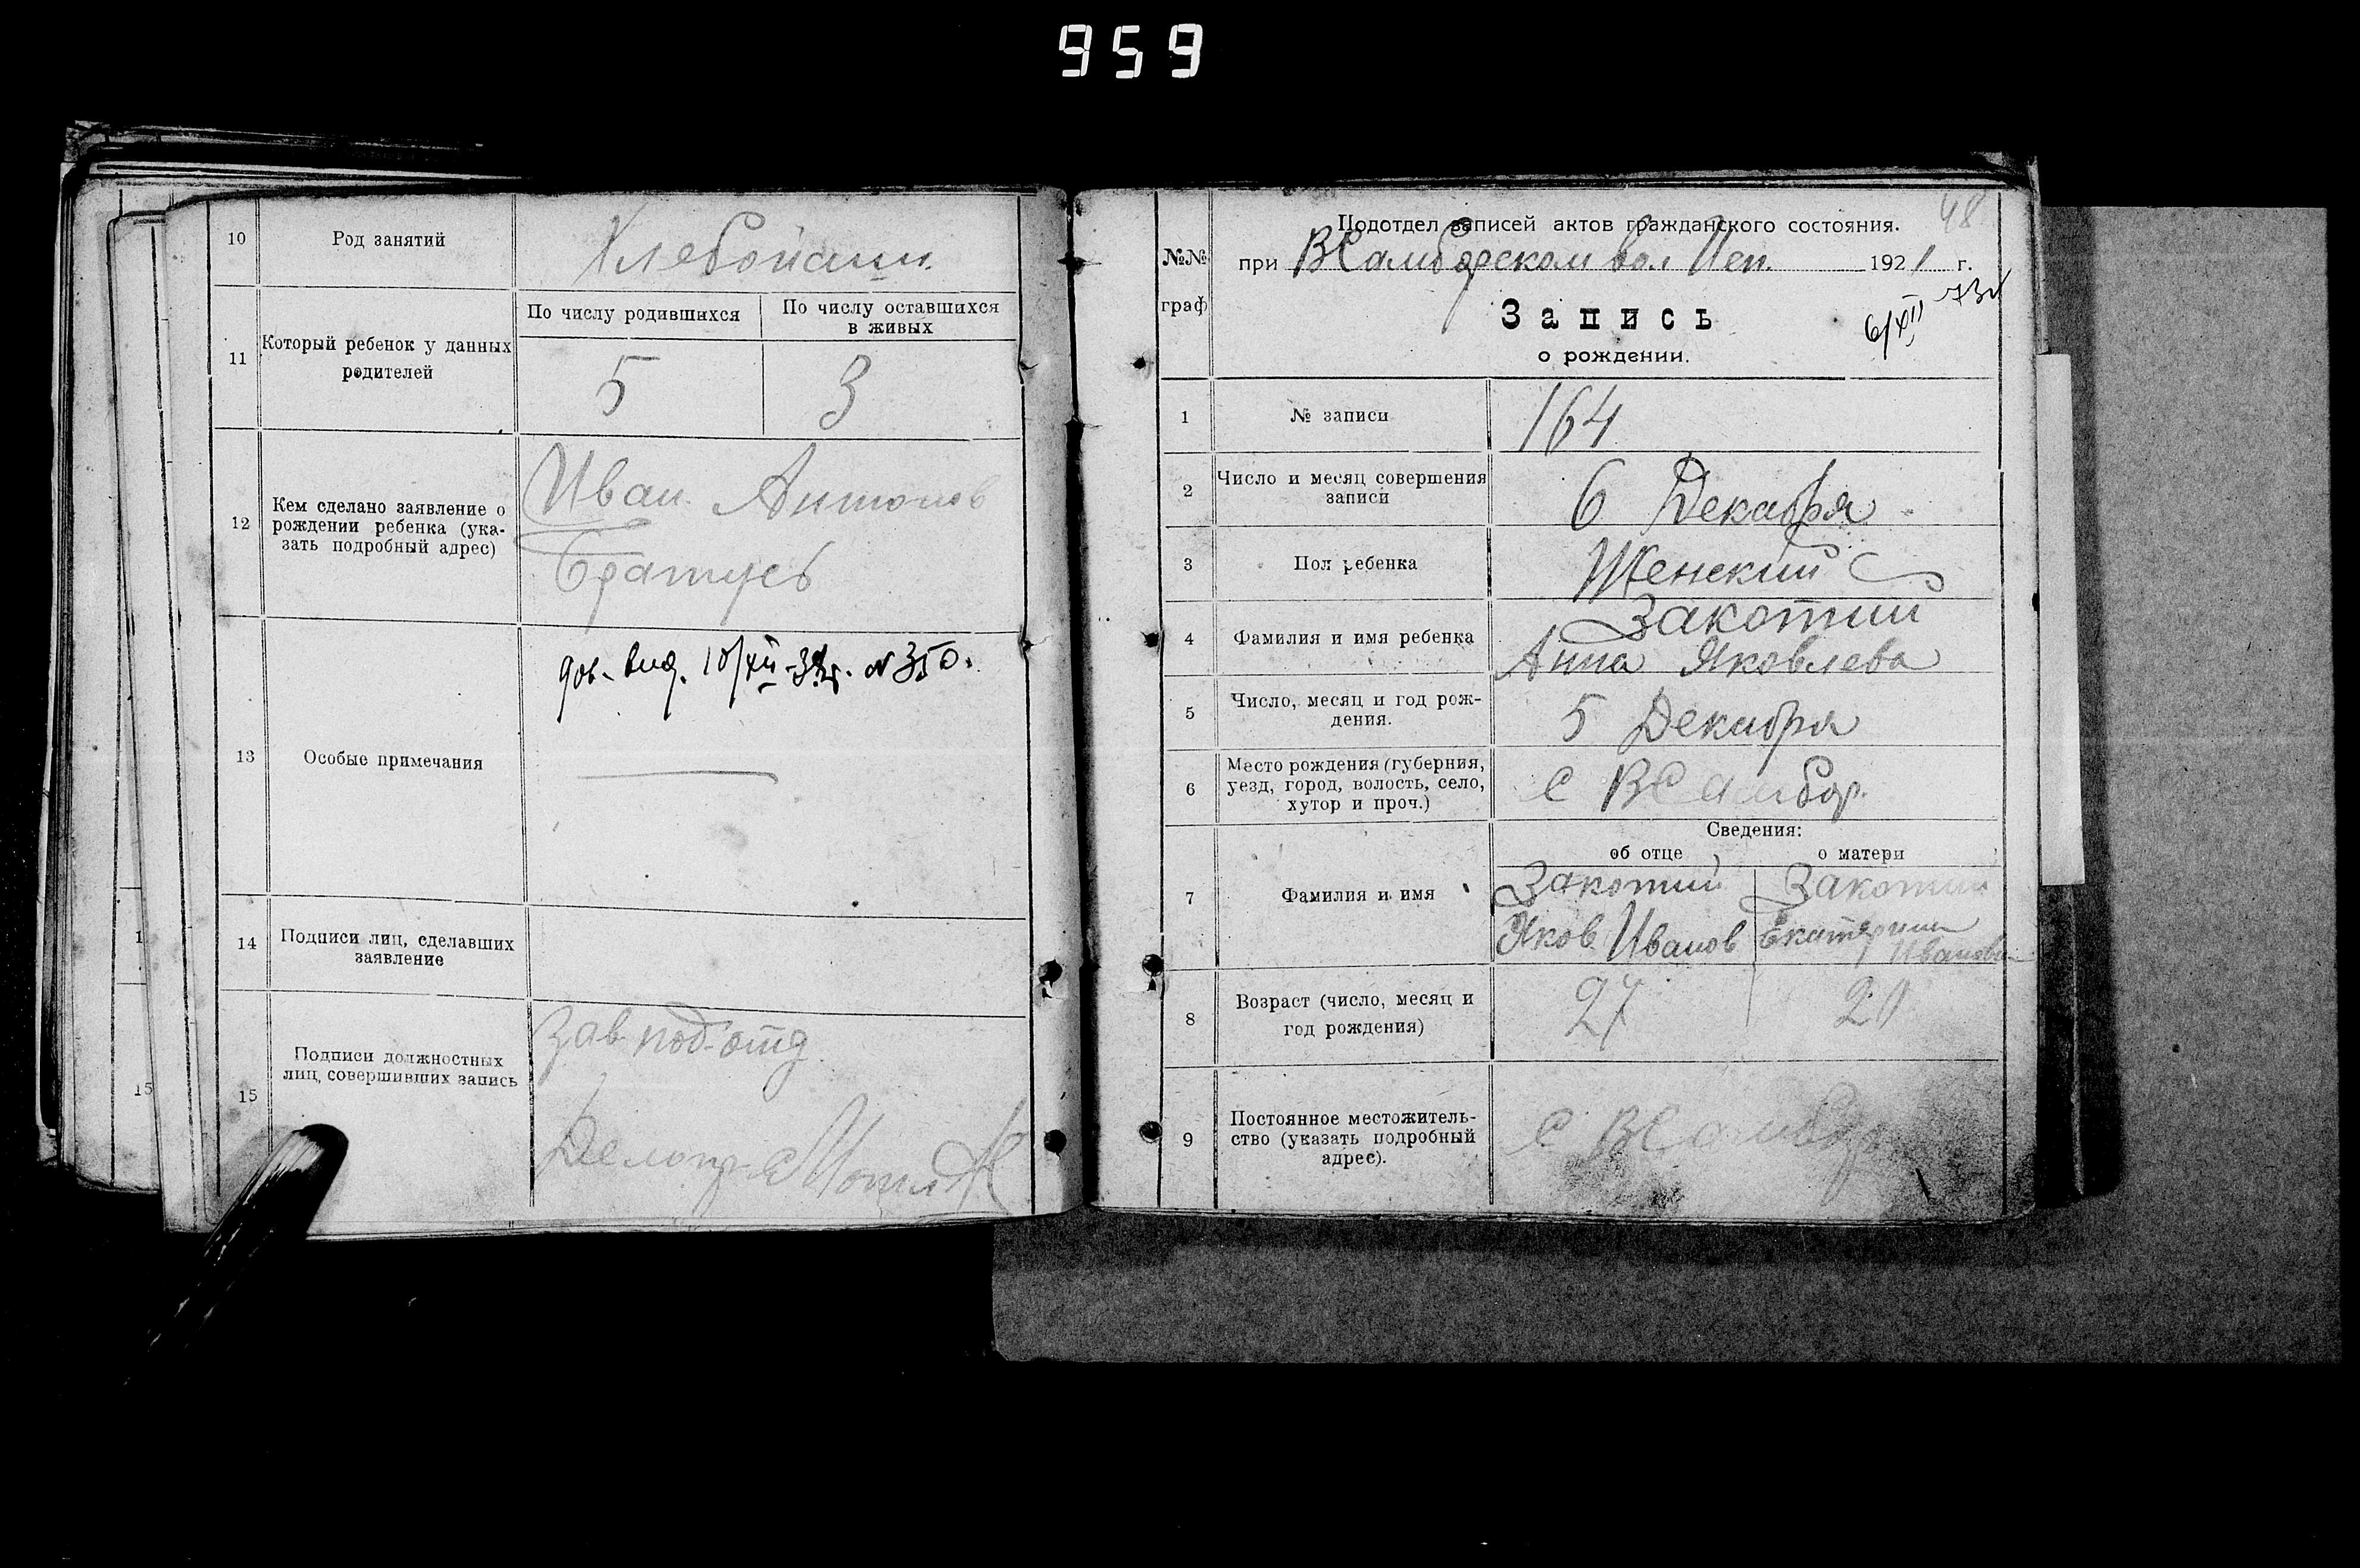 959
10
Род занятий
Хлебопаш.
11
Который ребенок у данных
родителей
По числу родившихся
По числу оставшихся
в живых
5
3
12
Кем сделано заявление о
рождении ребенка (ука-
зать подробный адрес)
Иван Антонов
Братусь
13
Особые примечания
N 350.
14
Подписи лиц, сделавших
заявление
15
Подписи должностных
лиц, совершивших запись
Зав под-отд
Делопр
1
15
48
№№
граф
Подотдел записей актов гражданского состояния.
при ВСамборском вол Исп. 1921 г.
Запись
6/XII
о рождении.
1
№ записи
164
2
Число и месяц совершения
записи
6 Декабря
3
Пол ребенка
Женский
4
Фамилия и имя ребенка
Закотий
Анна Яковлева
5
Число, месяц и год рож-
дения.
5 Декабря
6
Место рождения (губерния,
уезд, город, волость, село,
хутор и проч.)
С ВСамбор.
Сведения:
об отце
о матери
7
Фамилия и имя
Закотий
Яков Иванов
Закотий
Екатерина
Иванова
8
Возраст (число, месяц и
год рождения)
27
9
Постоянное местожитель-
ство (указать подробный
адрес).
С ВСамбор